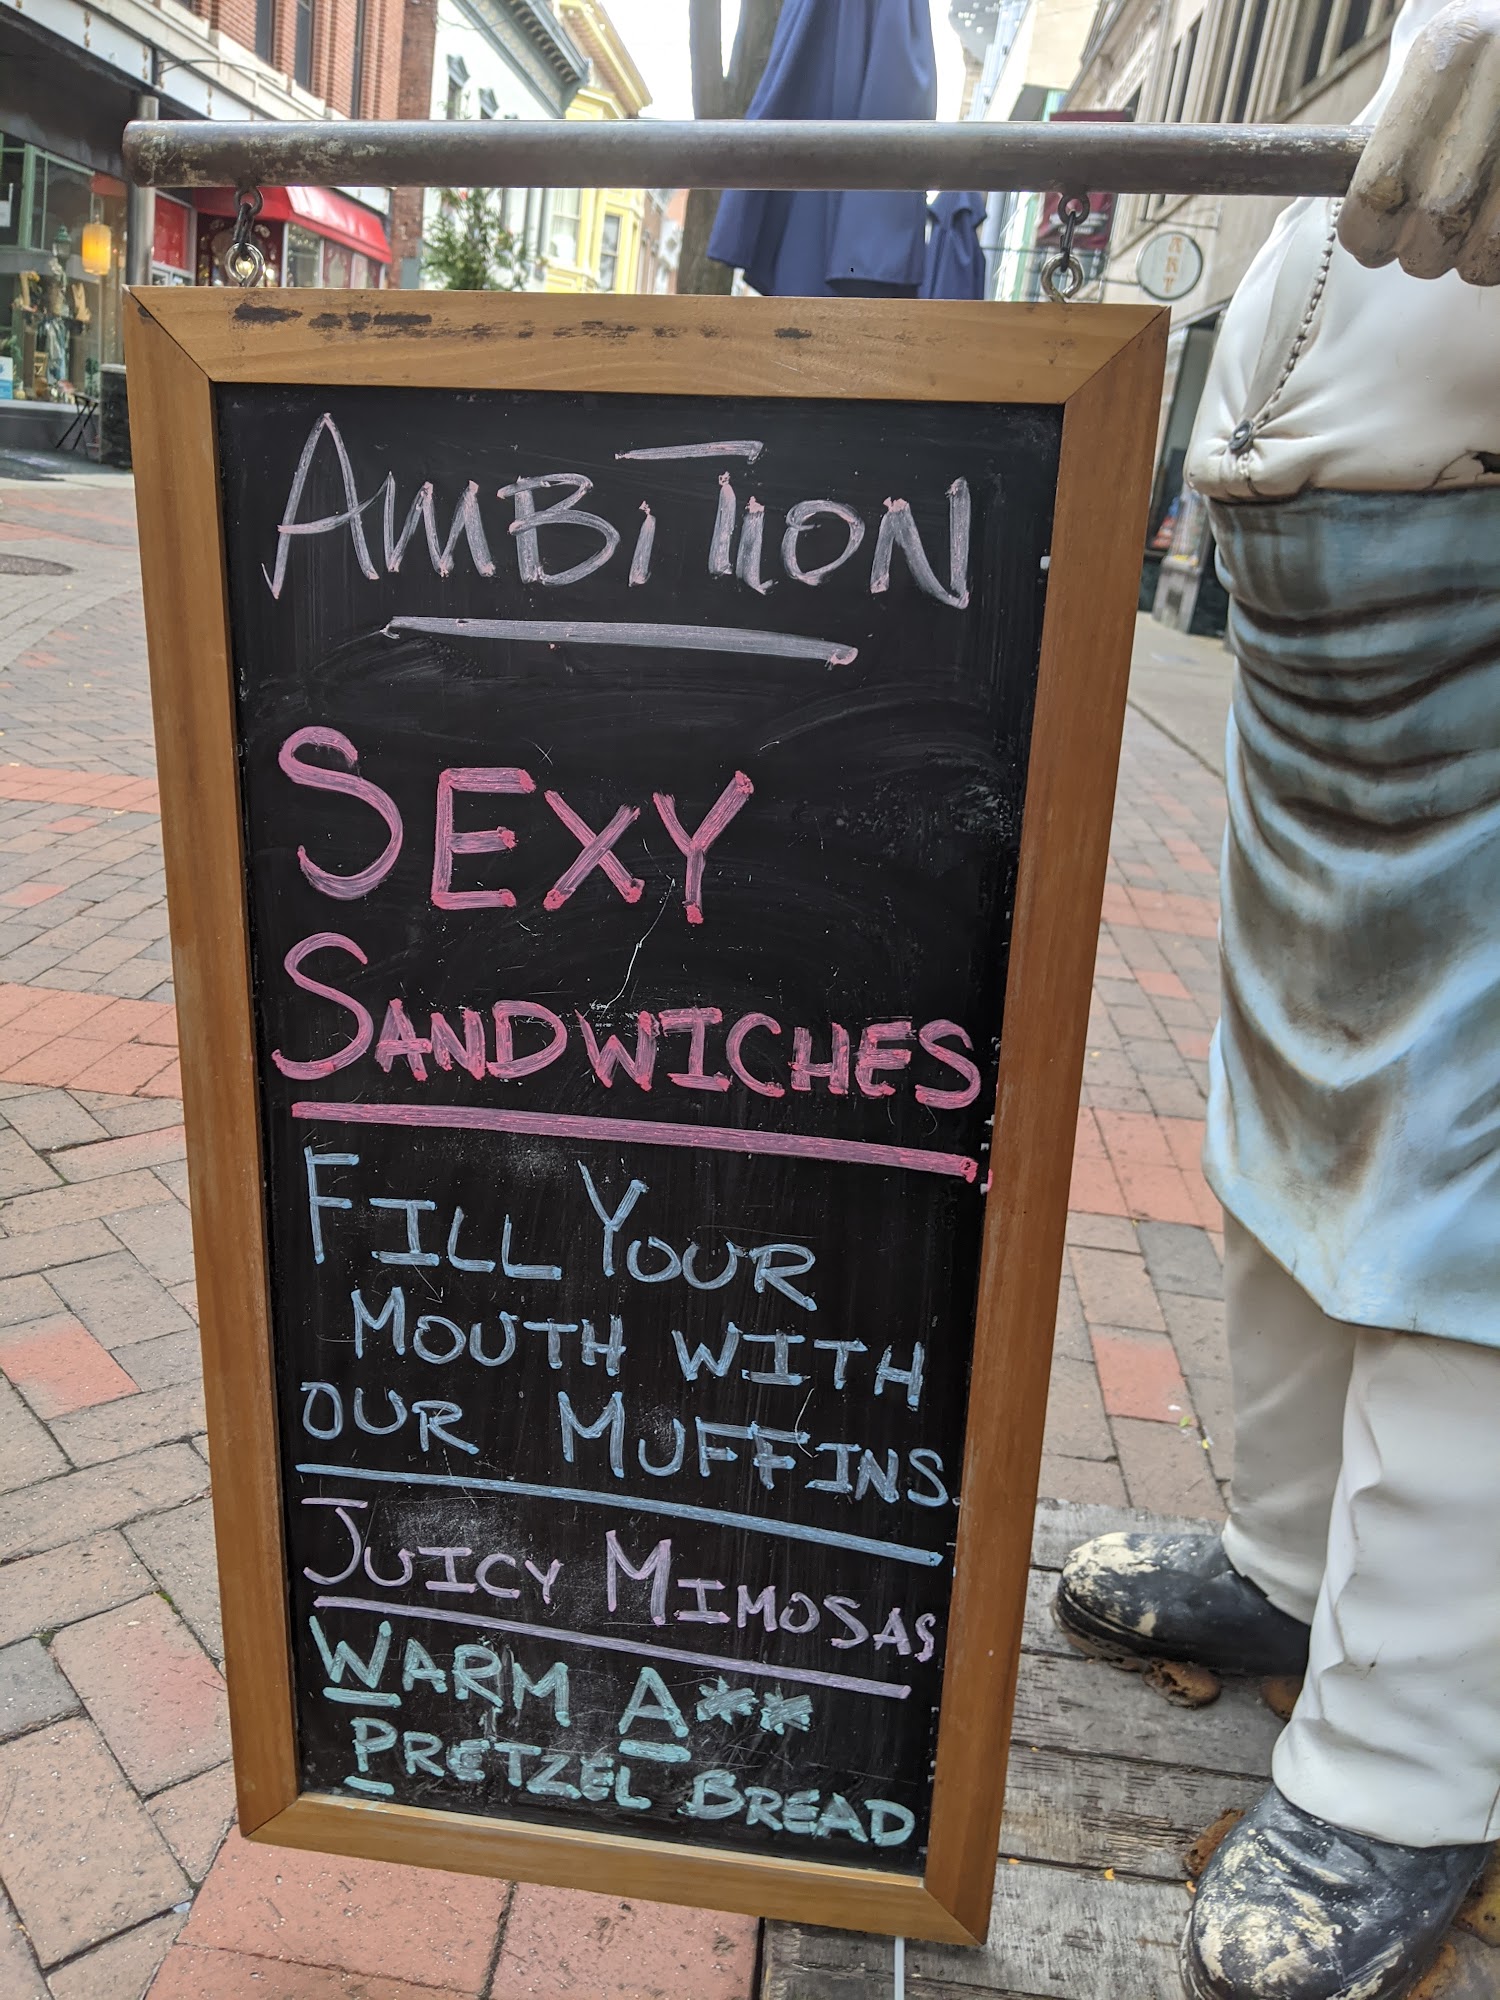 AMBiTiON
SEXY
SANDWICHES
FILL YOUR
MOUTH WITH
OUR MUFFINS.
JUICY MIMOSAS
WARM A**
PRETZEL BREAD